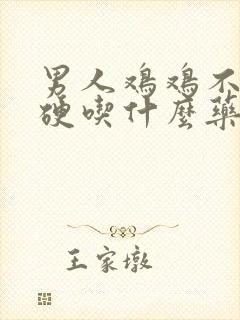 男人鸡鸡不
硬喫什麼藥
王家墩